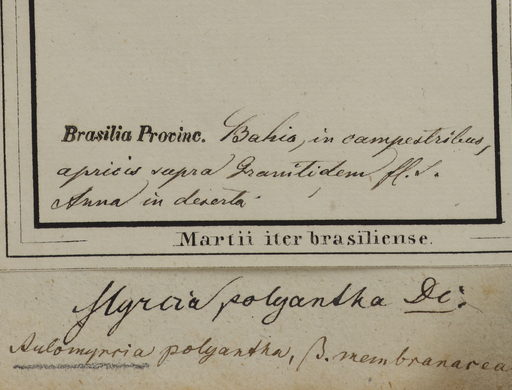 Brasilia Provinc. Bahia, in campestribus,
apricis supra Granitidem fl. S.
Anna in deserta
Martii iter brasiliense.
Myrcia polyantha DC.
Aulomyrcia polyantha, β. membranacea